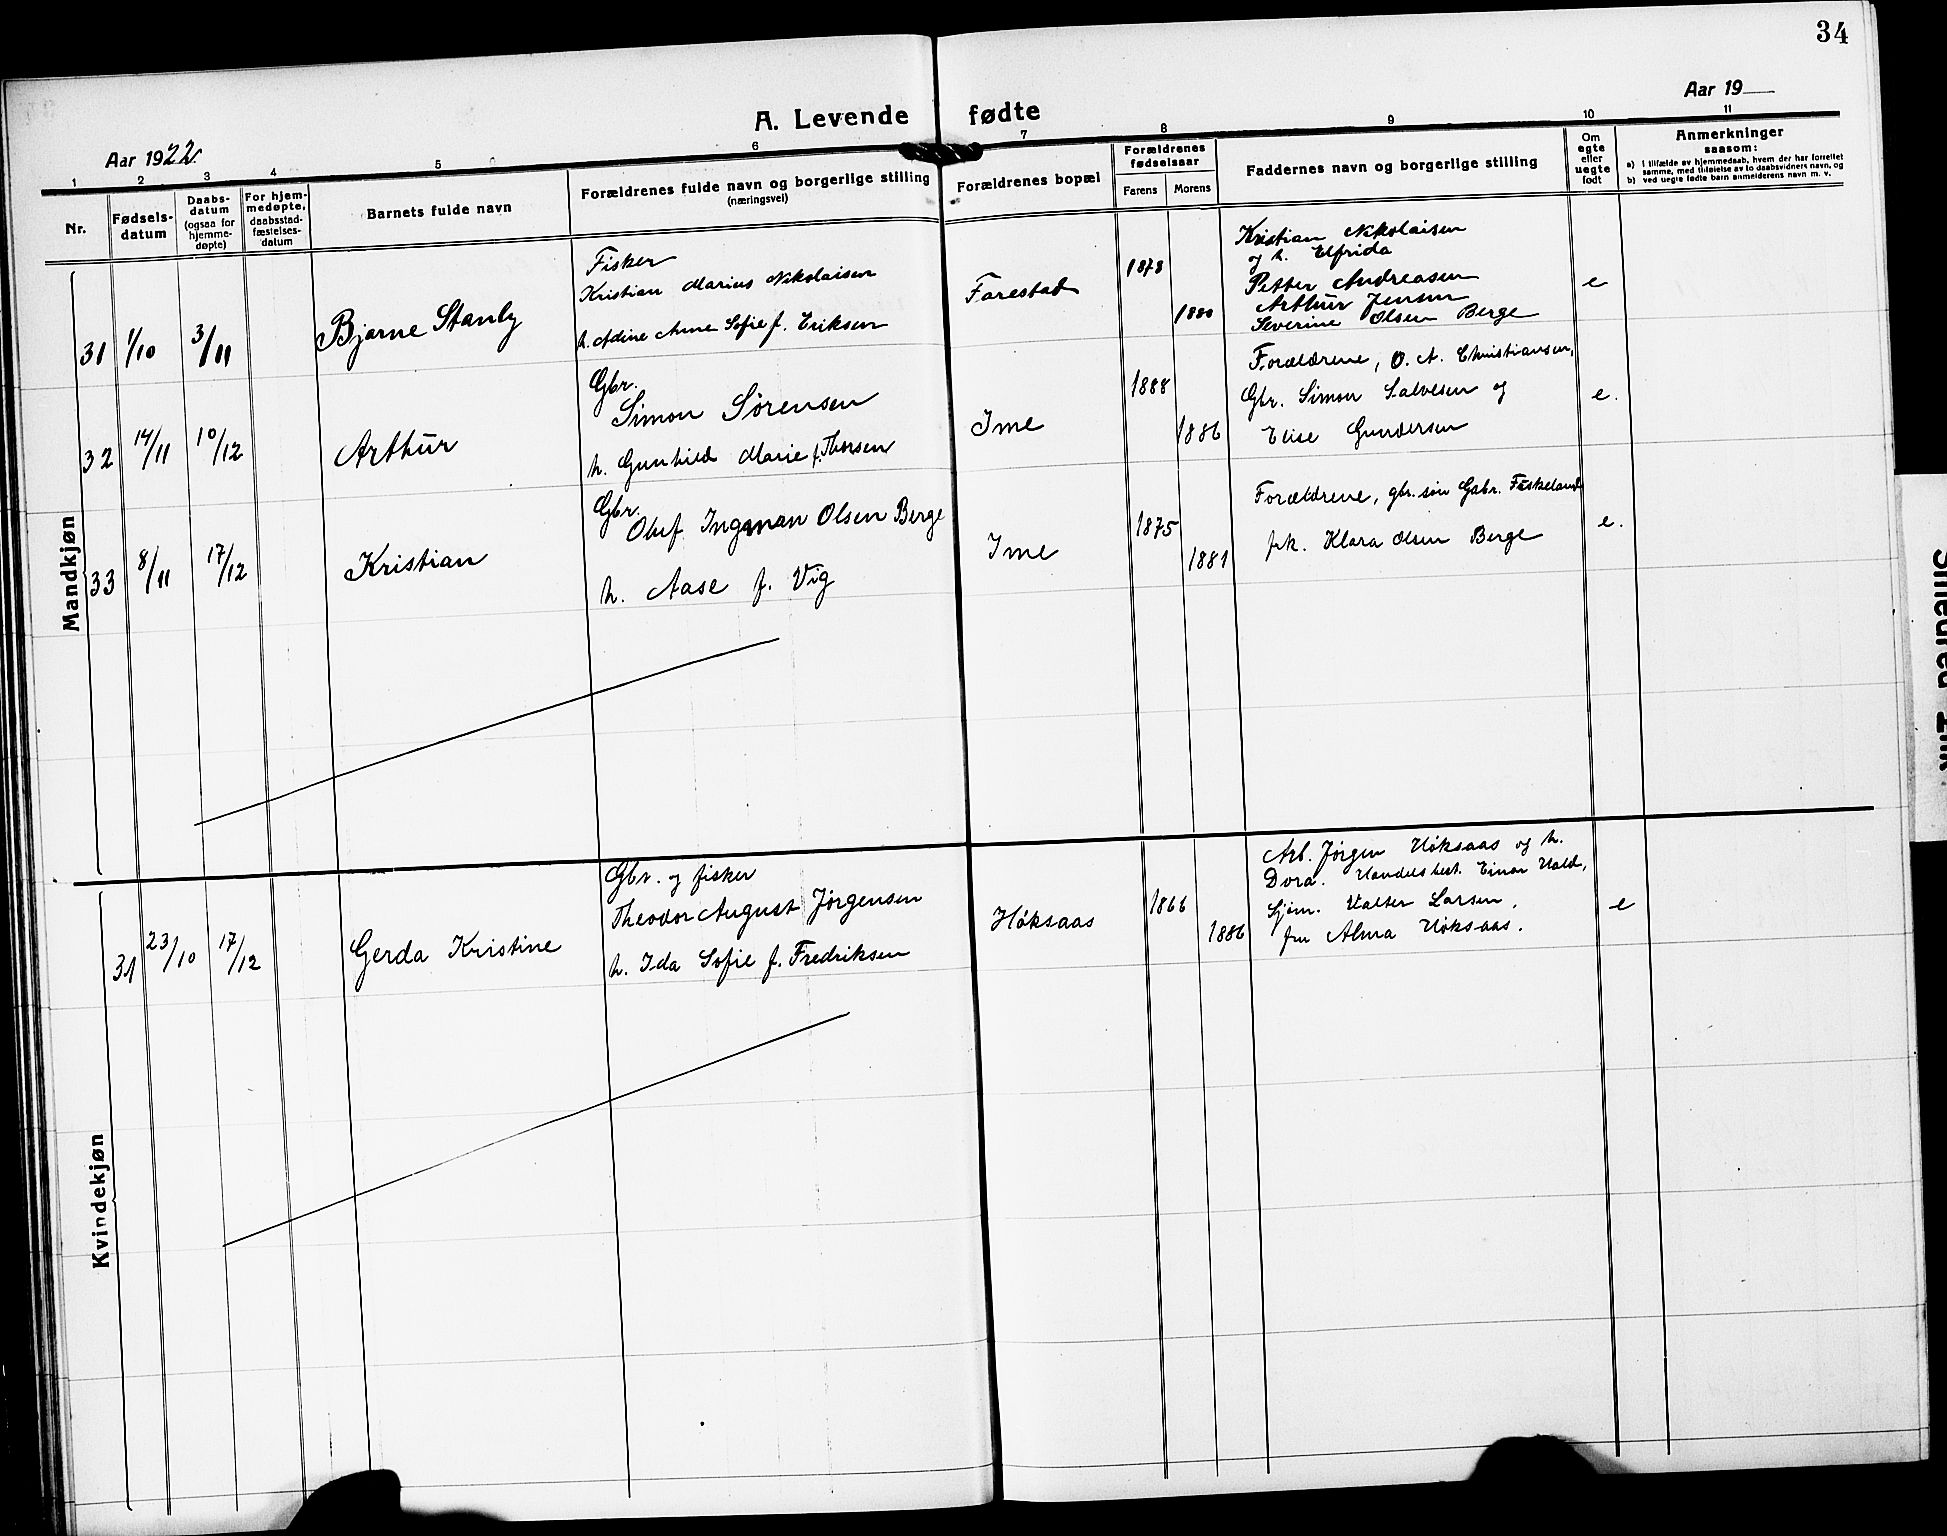 34
Aar 19
A. Levende fødte
Aar 1922.
1 2 3 4 5 6 7 8 9 10 11
Nr.
Fødsels-
datum
Daabs-
datum
(ogsaa for
hjemme-
døpte)
For hjem-
medøpte,
daabsstad-
fæstelses-
datum
Barnets fulde navn
Forældrenes fulde navn og borgerlige stilling
(næringsvei)
Forældrenes bopæl
Forældrenes
fødselsaar
Farens Morens
Faddernes navn og borgerlige stilling
Om
egte
eller
uegte
født
Anmerkninger
saasom:
a) i tilfælde av hjemmedaab, hvem der har forrettet
samme, med tilføielse av to daabsvidners navn, og
b) ved uegte fødte barn anmelderens navn m. v.
Mandkjøn
31 1/10 3/11
Bjarne Stanly
Fisker
Kristian Marius Nikolaisen
h. Adine Anne Sofie f. Eriksen
Farestad
1878
1880
Kristian Nikolaisen
og h. Elfrida
Petter Andreasen
Arthur Jensen
Severine Olsen Berge
e
32 14/11 10/12
Arthur
Gbr.
Simon Sørensen
h. Gunhild Marie f. Thorsen
Ime
1888
1886
Forældrene, O. A. Christiansen,
Gbr. Simon Salvesen og
Elise Gundersen
e.
33 8/11 17/12
Kristian
Gbr.
Oluf Ingman Olsen Berge
h. Aase f. Vig
Ime
1875
1881
Forældrene, gbr. søn Gabr. Fiskeland
frk. Klara Olsen Berge
e.
Kvindekjøn
31 23/10 17/12
Gerda Kristine
Gbr. og fisker
Theodor August Jørgensen
h. Ida Sofie f. Fredriksen
Høksaas
1866
1886
Arb. Jørgen Høksaas og h.
Dora. Handelsbest. Einar Hald,
Sjøm. Valter Larsen,
fru Alma Høksaas.
e